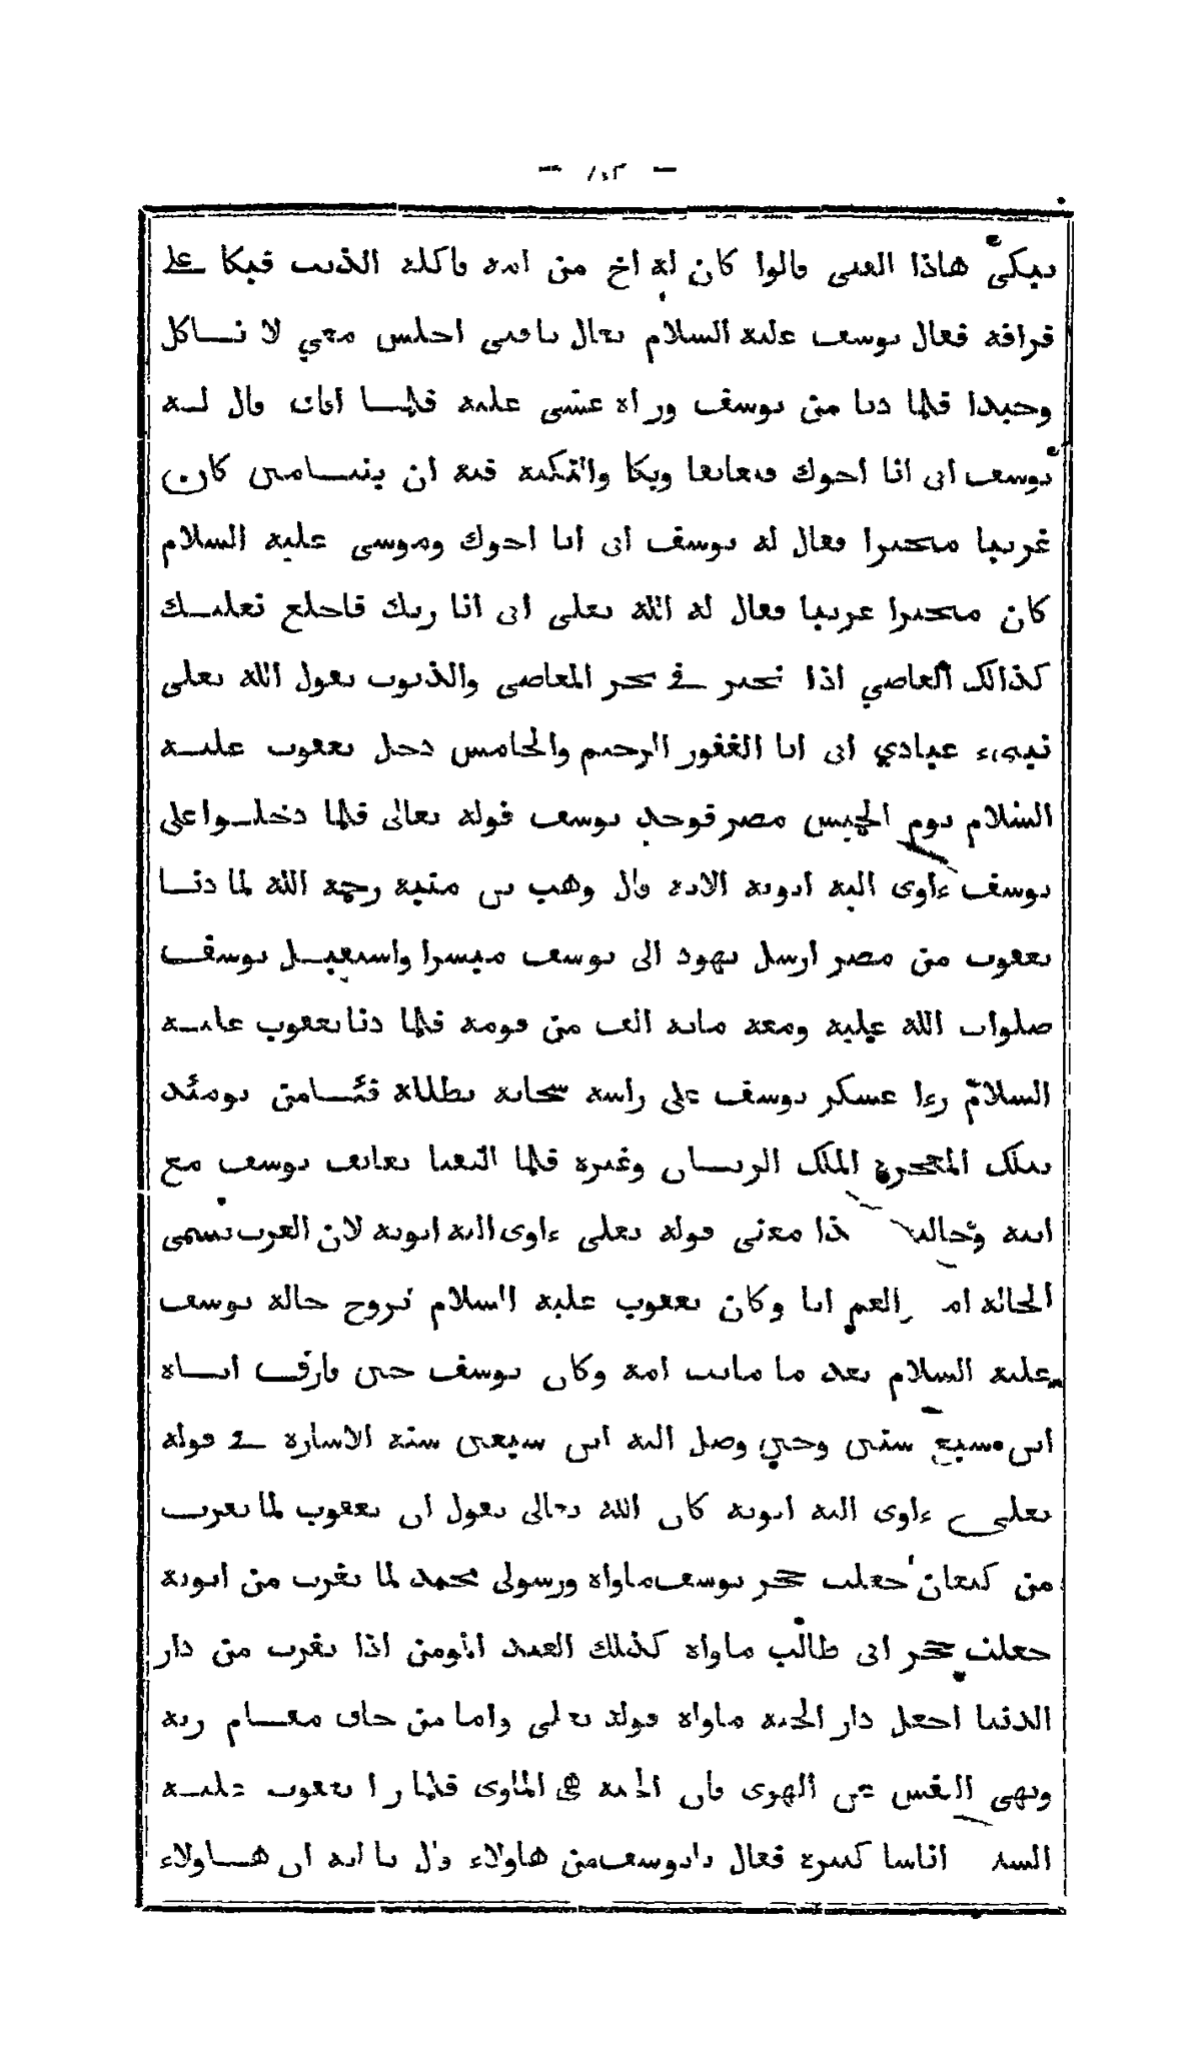 - ١٤٣ -
يبكي هاذا الفتى قالوا كان له اخ من امه فاكله الذيب فبكا على
فراقه فقال يوسف عليه السلام تعال يا فتى اجلس معي لا تاكل
وحيدا فلما دنا من يوسف وراه غشي عليه فلما افاق قال له
يوسف اني انا اخوك فتعانقا وبكا والنكتة فيه ان بنيامين كان
غريبا متحيرا فقال له يوسف اني انا اخوك وموسى عليه السلام
كان متحيرا غريبا فقال له الله تعلى اني انا ربك فاخلع نعليك
كذالك العاصي اذا تحير في بحر المعاصي والذنوب يقول الله تعلى
نبيء عبادي اني انا الغفور الرحيم والخامس دخل يعقوب عليه
السلام يوم الخميس مصر فوجد يوسف قوله تعالى فلما دخلوا على
يوسف ءاوى اليه ابويه الاية قال وهب بن منبه رحمه الله لما دنا
يعقوب من مصر ارسل يهود الى يوسف مبشرا واستقبل يوسف
صلوات الله عليه ومعه ماية الف من قومه فلما دنا يعقوب عليه
السلام رءا عسكر يوسف على راسه سحابة تظلله فئامن يومئذ
بتلك المعجزة الملك الريان وغيره فلما التقيا تعانق يوسف مع
ابيه وخالته ذا معنى قوله تعلى ءاوى اليه ابويه لان العرب تسمى
الخالة ام والعم ابا وكان يعقوب عليه السلام تزوج خالة يوسف
عليه السلام بعد ما ماتت امه وكان يوسف حين فارق اباه
ابن سبع سنين وحين وصل اليه ابن سبعين سنة الاشارة في قوله
تعلى ءاوى اليه ابويه كان الله تعالى يقول ان يعقوب لما تغرب
من كنعان جعلت حجر يوسف ماواه ورسولي محمد لما تغرب من ابويه
جعلت حجر ابي طالب ماواه كذلك العبد المومن اذا تغرب من دار
الدنيا اجعل دار الجنة ماواه قوله تعلى واما من خاف مقام ربه
ونهى النفس عن الهوى فان الجنة هي الماوى فلما را يعقوب عليه
اناسا كثيرة فقال يا يوسف من هاولاء قال يا ابه ان هاولاء